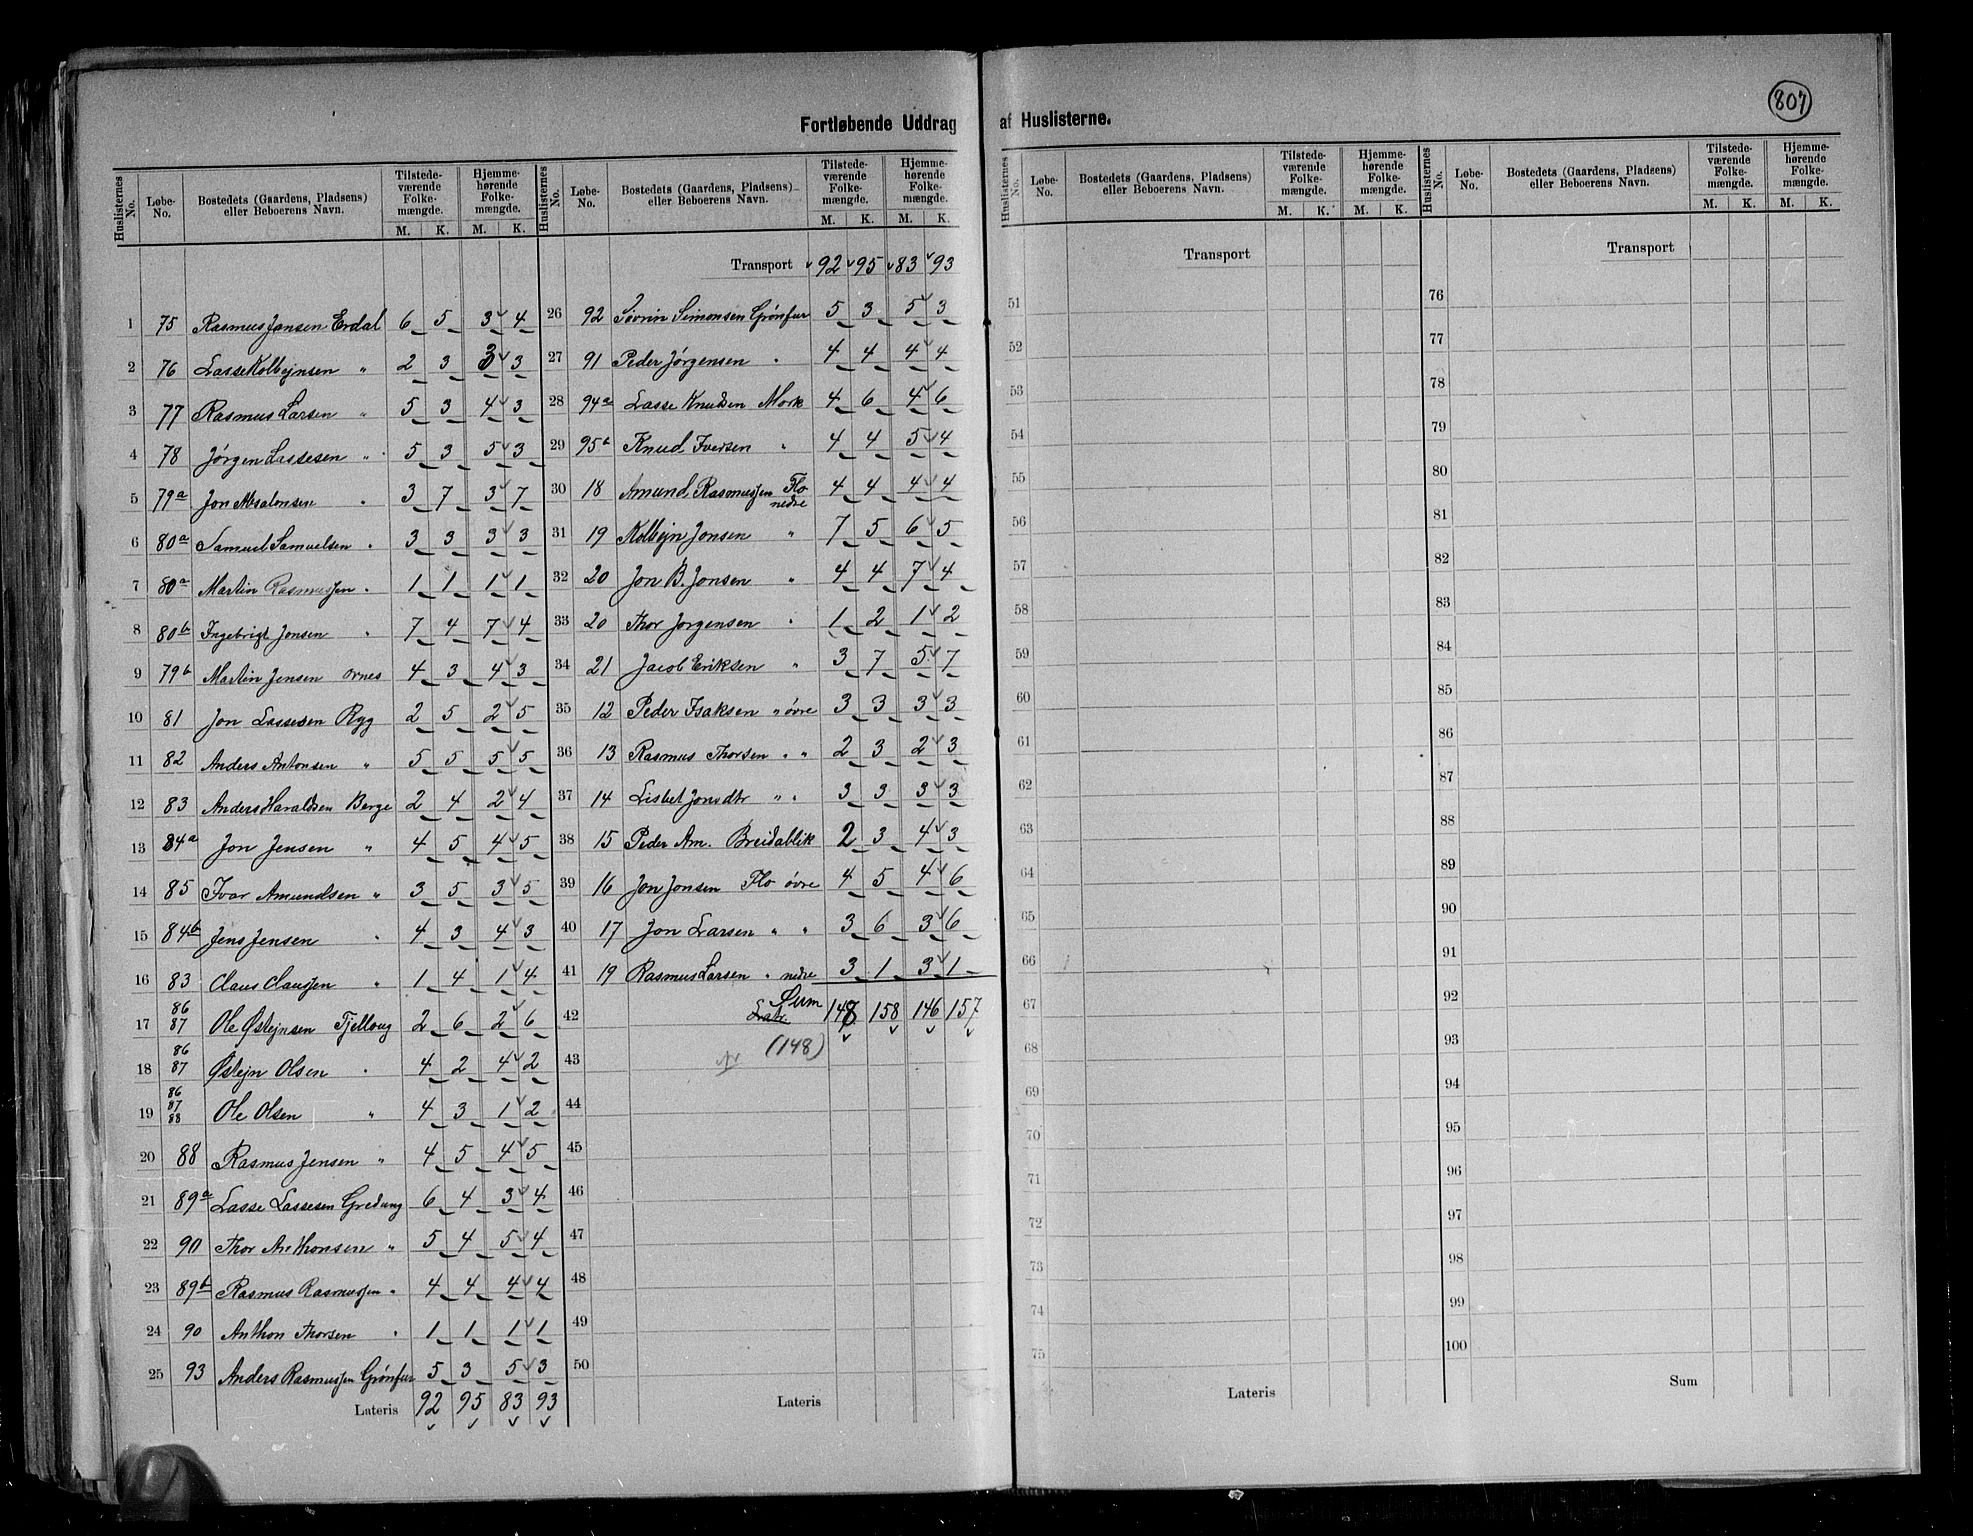 807
Fortløbende Uddrag af Huslisterne.
Huslisternes No. Løbe-No. Bostedets (Gaardens, Pladsens) eller Beboerens Navn. Tilstede-værende Folke-mængde. M. K. Hjemme-hørende Folke-mængde. M. K.
1 75 Rasmus Jensen Erdal 6 5 3 4
2 76 Lasse Kolbejnsen " 2 3 3 3
3 77 Rasmus Larsen " 5 3 4 3
4 78 Jørgen Lassesen " 5 3 5 3
5 79a Jon Absalonsen " 3 7 3 7
6 80a Samuel Samuelsen " 3 3 3 3
7 80a Martin Rasmussen " 1 1 1 1
8 80b Ingebrigt Jonsen " 7 4 7 4
9 79b Martin Jensen Ornes 4 3 4 3
10 81 Jon Lassesen Ryg 2 5 2 5
11 82 Anders Antonsen " 5 5 5 5
12 83 Anders Haraldsen Berge 2 4 2 4
13 84a Jon Jensen " 4 5 4 5
14 85 Ivar Amundsen " 3 5 3 5
15 84b Jens Jensen " 4 3 4 3
16 83 Claus Claussen " 1 4 1 4
17 86 87 Ole Østejnsen Tjellaug 2 6 2 6
18 86 87 Østejn Olsen " 4 2 4 2
19 86 87 88 Ole Olsen " 4 3 1 2
20 88 Rasmus Jensen " 4 5 4 5
21 89a Lasse Lassesen Gredung 6 4 3 4
22 90 Thor Anthonsen " 5 4 5 4
23 89b Rasmus Rasmussen " 4 4 4 4
24 90 Anthon Thorsen " 1 1 1 1
25 93 Anders Rasmussen Grønfur 5 3 5 3
Lateris 92 95 83 93
Huslisternes No. Løbe-No. Bostedets (Gaardens, Pladsens) eller Beboerens Navn. Tilstede-værende Folke-mængde. M. K. Hjemme-hørende Folke-mængde. M. K.
Transport 92 95 83 93
26 92 Sørrin Simonsen Grønfur 5 3 5 3
27 91 Peder Jørgensen " 4 4 4 4
28 94a Lasse Knudsen Mork 4 6 4 6
29 95b Knud Iversen " 4 4 5 4
30 18 Amund Rasmussen Flo nedre 4 4 4 4
31 19 Kolbejn Jonsen " 7 5 6 5
32 20 Jon B. Jonsen " 4 4 7 4
33 20 Thor Jørgensen " 1 2 1 2
34 21 Jacob Eriksen " 3 7 5 7
35 12 Peder Isaksen " øvre 3 3 3 3
36 13 Rasmus Thorsen " " 2 3 2 3
37 14 Lisbet Jonsdtr " " 3 3 3 3
38 15 Peder Am. Breidablik 2 3 4 3
39 16 Jon Jonsen Flo øvre 4 5 4 6
40 17 Jon Larsen " " 3 6 3 6
41 19 Rasmus Larsen " nedre 3 1 3 1
Sum
42 148 158 146 157
43 (148)
44
45
46
47
48
49
50
Lateris
Huslisternes No. Løbe-No. Bostedets (Gaardens, Pladsens) eller Beboerens Navn. Tilstede-værende Folke-mængde. M. K. Hjemme-hørende Folke-mængde. M. K.
Transport
51
52
53
54
55
56
57
58
59
60
61
62
63
64
65
66
67
68
69
70
71
72
73
74
75
Lateris
Huslisternes No. Løbe-No. Bostedets (Gaardens, Pladsens) eller Beboerens Navn. Tilstede-værende Folke-mængde. M. K. Hjemme-hørende Folke-mængde. M. K.
Transport
76
77
78
79
80
81
82
83
84
85
86
87
88
89
90
91
92
93
94
95
96
97
98
99
100
Sum